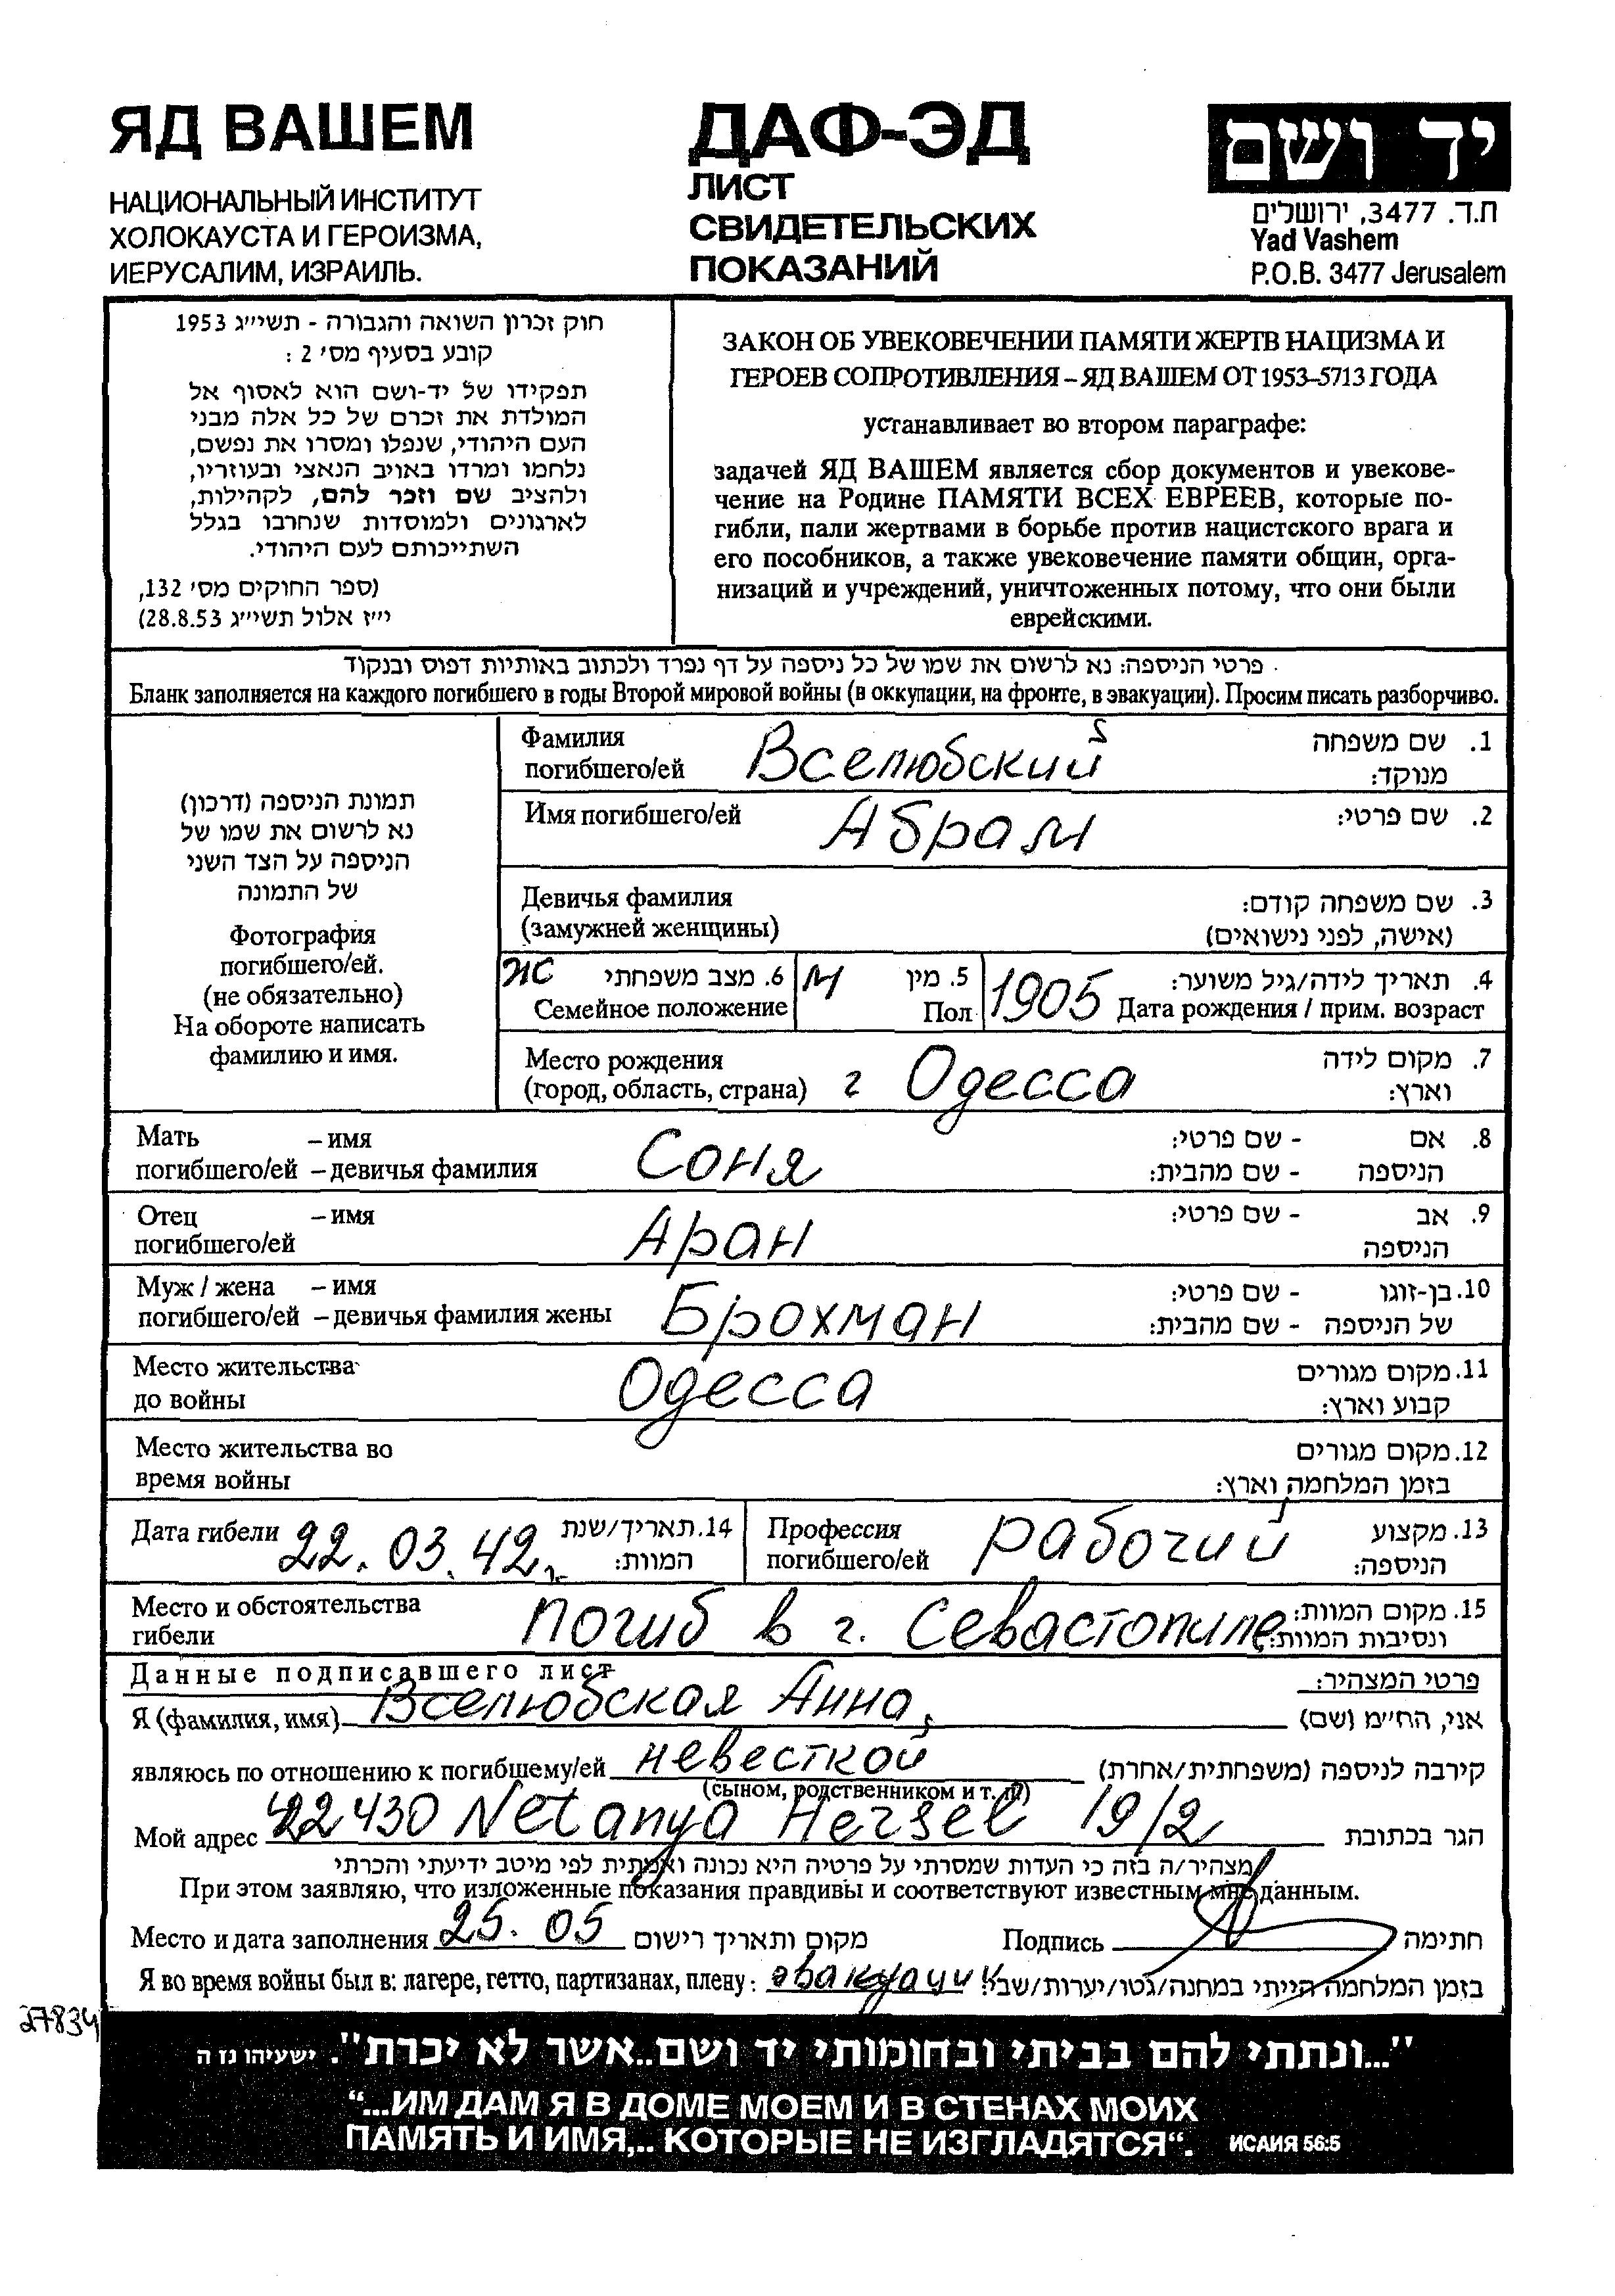 ЯД ВАШЕМ
НАЦИОНАЛЬНЫЙ ИНСТИТУТ
ХОЛОКАУСТА И ГЕРОИЗМА,
ИЕРУСАЛИМ, ИЗРАИЛЬ.
ДАФ-ЭД
ЛИСТ
СВИДЕТЕЛЬСКИХ
ПОКАЗАНИЙ
יד ושם
ת.ד. 3477, ירושלים
Yad Vashem
P.O.B. 3477 Jerusalem
חוק זכרון השואה והגבורה - תשי״ג 1953
קובע בסעיף מס׳ 2 :
תפקידו של יד-ושם הוא לאסוף אל
המולדת את זכרם של כל אלה מבני
העם היהודי, שנפלו ומסרו את נפשם,
נלחמו ומרדו באויב הנאצי ובעוזריו,
ולהציב שם וזכר להם, לקהילות,
לארגונים ולמוסדות שנחרבו בגלל
השתייכותם לעם היהודי.
(ספר החוקים מס׳ 132,
י״ז אלול תשי״ג 28.8.53)
ЗАКОН ОБ УВЕКОВЕЧЕНИИ ПАМЯТИ ЖЕРТВ НАЦИЗМА И
ГЕРОЕВ СОПРОТИВЛЕНИЯ – ЯД ВАШЕМ ОТ 1953–5713 ГОДА
устанавливает во втором параграфе:
задачей ЯД ВАШЕМ является сбор документов и увекове-
чение на Родине ПАМЯТИ ВСЕХ ЕВРЕЕВ, которые по-
гибли, пали жертвами в борьбе против нацистского врага и
его пособников, а также увековечение памяти общин, орга-
низаций и учреждений, уничтоженных потому, что они были
еврейскими.
פרטי הניספה: נא לרשום את שמו של כל ניספה על דף נפרד ולכתוב באותיות דפוס ובנקוד
Бланк заполняется на каждого погибшего в годы Второй мировой войны (в оккупации, на фронте, в эвакуации). Просим писать разборчиво.
תמונת הניספה (דרכון)
נא לרשום את שמו של
הניספה על הצד השני
של התמונה
Фотография
погибшего/ей.
(не обязательно)
На обороте написать
фамилию и имя.
Фамилия
погибшего/ей Вселюбский
1. שם משפחה
מנוקד:
Имя погибшего/ей Абрам 2. שם פרטי:
Девичья фамилия
(замужней женщины)
3. שם משפחה קודם:
(אישה, לפני נישואים)
6. מצב משפחתי
Семейное положение
М 5. מין
Пол
1905 4. תאריך לידה/גיל משוער:
Дата рождения / прим. возраст
Место рождения
(город, область, страна) г Одесса
7. מקום לידה
וארץ:
Мать – имя
погибшего/ей – девичья фамилия Соня
8. אם - שם פרטי:
הניספה - שם מהבית:
Отец – имя
погибшего/ей Аран
9. אב - שם פרטי:
הניספה
Муж / жена – имя
погибшего/ей – девичья фамилия жены Брохман
10. בן-זוגו - שם פרטי:
של הניספה - שם מהבית:
Место жительства
до войны Одесса
11. מקום מגורים
קבוע וארץ:
Место жительства во
время войны
12. מקום מגורים
בזמן המלחמה וארץ:
Дата гибели 22.03.42г.
14. תאריך/שנת
המוות:
Профессия
погибшего/ей рабочий
13. מקצוע
הניספה:
Место и обстоятельства
гибели погиб в г. Севастопиле
15. מקום המוות:
ונסיבות המוות:
Данные подписавшего лист פרטי המצהיר:
Я (фамилия, имя) Вселюбская Анна, אני, הח״מ (שם)
являюсь по отношению к погибшему/ей невесткой קירבה לניספה (משפחתית/אחרת)
(сыном, родственником и т. п)
Мой адрес 42430 Netanya Herzel 19/2 הגר בכתובת
מצהיר/ה בזה כי העדות שמסרתי על פרטיה היא נכונה ואמתית לפי מיטב ידיעתי והכרתי
При этом заявляю, что изложенные показания правдивы и соответствуют известным мне данным.
Место и дата заполнения 25.05 מקום ותאריך רישום Подпись חתימה
Я во время войны был в: лагере, гетто, партизанах, плену: эвакуации בזמן המלחמה הייתי במחנה/גטו/יערות/שבי:
27834
"...ונתתי להם בביתי ובחומותי יד ושם..אשר לא יכרת". ישעיהו נז ה
“...ИМ ДАМ Я В ДОМЕ МОЕМ И В СТЕНАХ МОИХ
ПАМЯТЬ И ИМЯ,.. КОТОРЫЕ НЕ ИЗГЛАДЯТСЯ“. ИСАИЯ 56:5